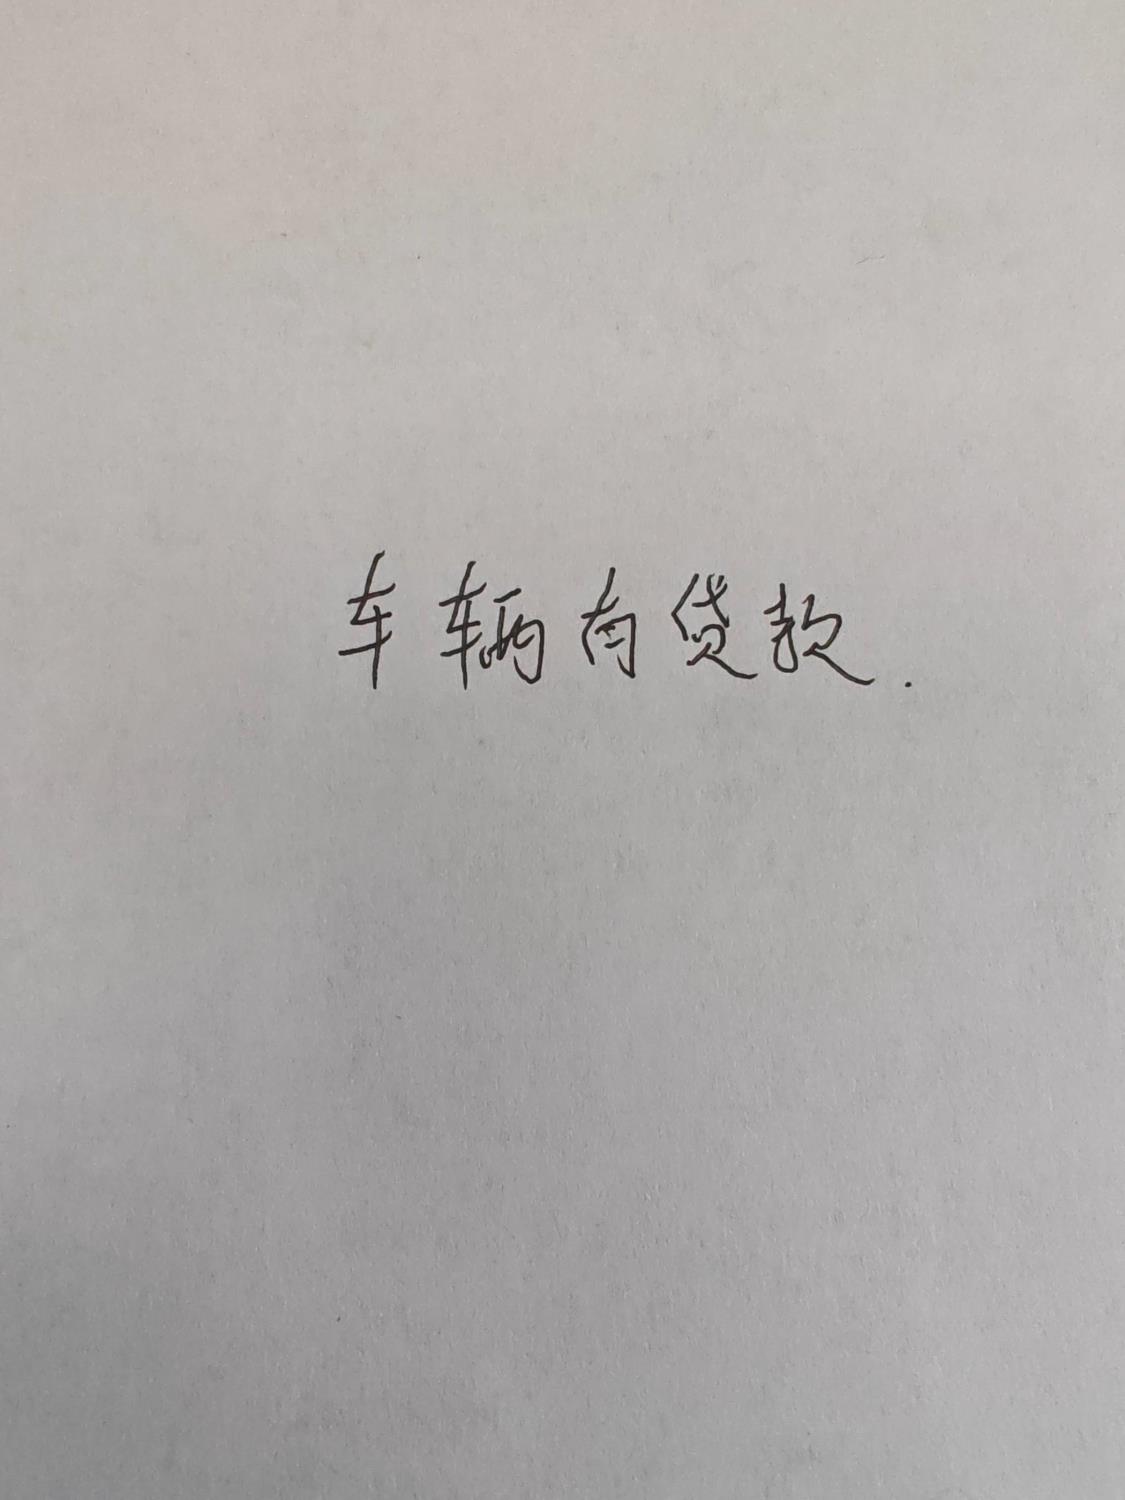 车辆有贷款.